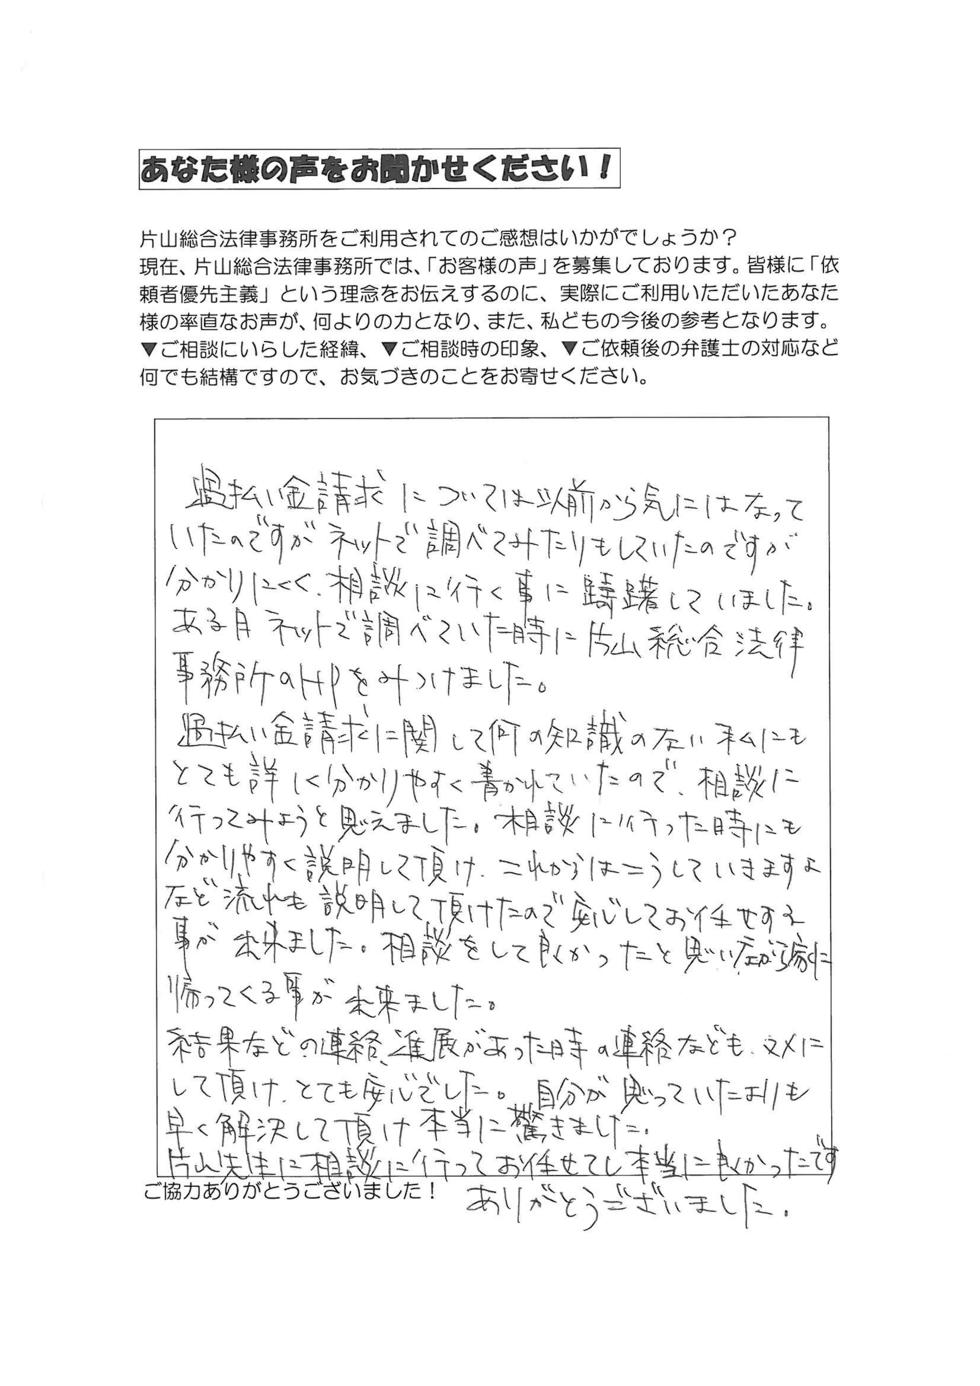 あなた様の声をお聞かせください！
片山総合法律事務所をご利用されてのご感想はいかがでしょうか？
現在、片山総合法律事務所では、「お客様の声」を募集しております。皆様に「依
頼者優先主義」という理念をお伝えするのに、実際にご利用いただいたあなた
様の率直なお声が、何よりの力となり、また、私どもの今後の参考となります。
▼ご相談にいらした経緯、▼ご相談時の印象、▼ご依頼後の弁護士の対応など
何でも結構ですので、お気づきのことをお寄せください。
過払い金請求については以前から気にはなって
いたのですがネットで調べてみたりもしていたのですが
分かりにくく、相談に行く事に躊躇していました。
ある日ネットで調べていた時に片山総合法律
事務所のHPをみつけました。
過払い金請求に関して何の知識のない私にも
とても詳しく分かりやすく書かれていたので、相談に
行ってみようと思えました。相談に行った時にも
分かりやすく説明して頂け、これからはこうしていきますよ
など流れも説明して頂けたので安心してお任せする
事が出来ました。相談をして良かったと思いながら家に
帰ってくる事が出来ました。
結果などの連絡、進展があった時の連絡なども、マメに
して頂け、とても安心でした。自分が思っていたよりも
早く解決して頂け本当に驚きました。
片山先生に相談に行ってお任せして本当に良かったです
ご協力ありがとうございました！
ありがとうございました。